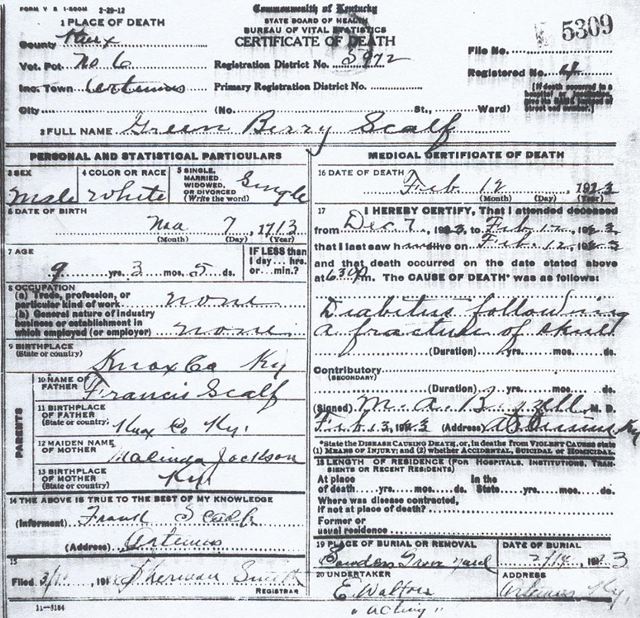 FORM V S 1-500M 2-29-12
Commonwealth of Kentucky
STATE BOARD OF HEALTH
BUREAU OF VITAL STATISTICS
CERTIFICATE OF DEATH
5309
1 PLACE OF DEATH
County Knox
Vot. Pct. No. 6
Inc. Town Artemus
City
Registration District No. 5972
Primary Registration District No.
(No. St., Ward)
File No.
Registered No. 4
[If death occurred in a hospital or institution, give its NAME instead of street and number.]
2 FULL NAME Green Berry Scalf
PERSONAL AND STATISTICAL PARTICULARS
3 SEX
Male
4 COLOR OR RACE
White
5 SINGLE, MARRIED, WIDOWED, OR DIVORCED (Write the word)
Single
6 DATE OF BIRTH
Nov 7, 1913
(Month) (Day) (Year)
7 AGE
9 yrs. 3 mos. 5 ds.
IF LESS than 1 day... hrs. or... min.?
8 OCCUPATION
(a) Trade, profession, or particular kind of work none
(b) General nature of industry business or establishment in which employed (or employer) none
9 BIRTHPLACE
(State or country)
Knox Co Ky
PARENTS
10 NAME OF FATHER
Francis Scalf
11 BIRTHPLACE OF FATHER
(State or country)
Knox Co Ky.
12 MAIDEN NAME OF MOTHER
Malinda Jackson
13 BIRTHPLACE OF MOTHER
(State or country)
Ky.
14 THE ABOVE IS TRUE TO THE BEST OF MY KNOWLEDGE
(Informent) Frank Scalf
(Address) Artemus
15
Filed 191 Sherman Smith
REGISTRAR
11-5184
MEDICAL CERTIFICATE OF DEATH
16 DATE OF DEATH
Feb 12, 1923
(Month) (Day) (Year)
17 I HEREBY CERTIFY, That I attended deceased
from Dec 7, 1923, to Feb 12, 1923
that I last saw alive on Feb 12, 1923
and that death occurred on the date stated above
at 630 m. The CAUSE OF DEATH* was as follows:
Diabetus following
a fracture of skull
(Duration) yrs. mos. ds.
Contributory
(SECONDARY)
(Duration) yrs. mos. ds.
(Signed) M. A. M. D.
Feb 13, 1923 (Address) Ky
*State the DISEASE CAUSING DEATH, or, in deaths from VIOLENT CAUSES state (1) MEANS OF INJURY; and (2) whether ACCIDENTAL, SUICIDAL or HOMICIDAL.
18 LENGTH OF RESIDENCE (FOR HOSPITALS, INSTITUTIONS, TRANSIENTS OR RECENT RESIDENTS)
At place of death yrs. mos. ds.
In the State yrs. mos. ds.
Where was disease contracted, if not at place of death?
Former or usual residence
19 PLACE OF BURIAL OR REMOVAL
Grave yard
DATE OF BURIAL
1923
20 UNDERTAKER
E. Walton
"acting"
ADDRESS
Artemus Ky.